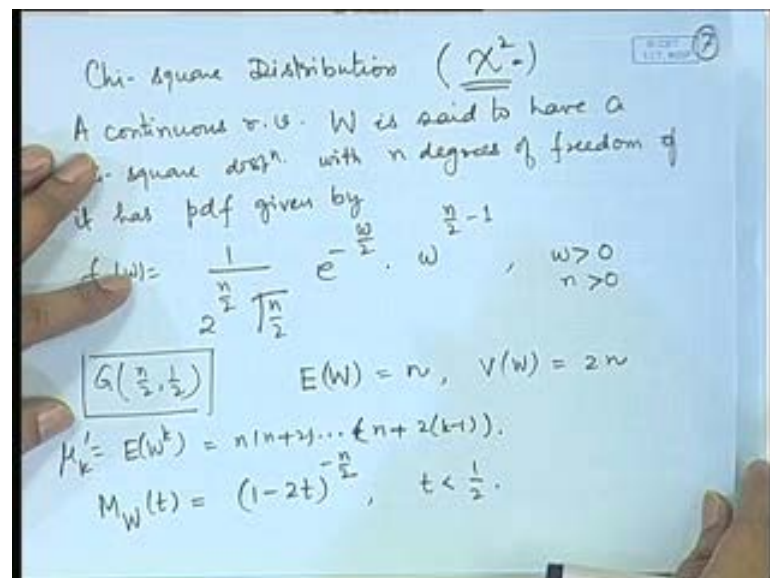 Chi-square Distribution (χ²-)
7
A continuous r.v. W is said to have a
square dist^n. with n degrees of freedom if
it has pdf given by
f (w) = 1/(2^{n/2} Γ(n/2)) e^{-w/2} · w^{n/2 - 1}, w>0
n>0
G(n/2, 1/2) E(W) = n, V(W) = 2n
μ_k' = E(W^k) = n(n+2)...(n+2(k-1)).
M_W(t) = (1-2t)^{-n/2}, t < 1/2.